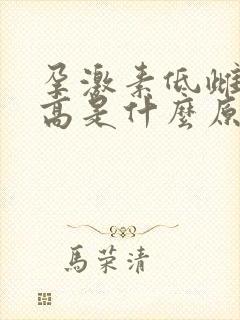 孕激素低雌
高是什麼原
馬荣清